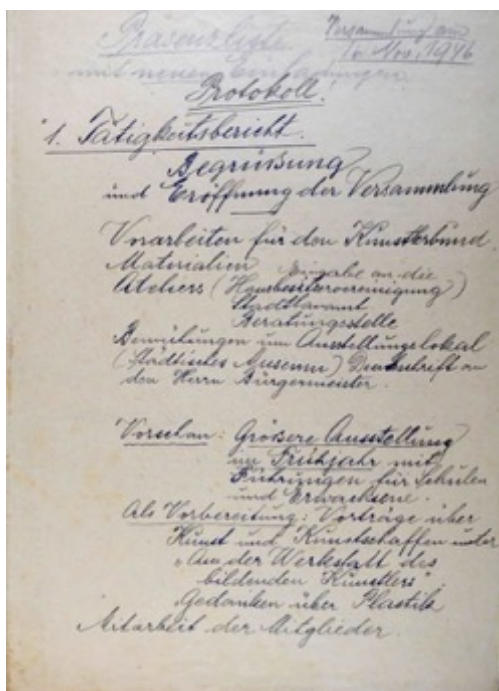 Präsenzliste
Versammlung am
16. Nov. 1946
mit neuen Einladungen
Protokoll!
1. Tätigkeitsbericht.
Begrüßung
und Eröffnung der Versammlung
Vorarbeiten für den Künstlerbund.
Materialien Eingabe an die
Ateliers (Hausbesitzervereinigung)
Stadtbauamt
Beratungsstelle
Bemühungen um Ausstellungslokal
(Städtisches Museum) Denkschrift an
den Herrn Bürgermeister.
Vorschau: Größere Ausstellung
im Frühjahr mit
Führungen für Schulen
und Erwachsene.
Als Vorbereitung: Vorträge über
Kunst und Kunstschaffen unter
"Aus der Werkstatt des
bildenden Künstlers"
Gedanken über Plastik
Mitarbeit der Mitglieder.